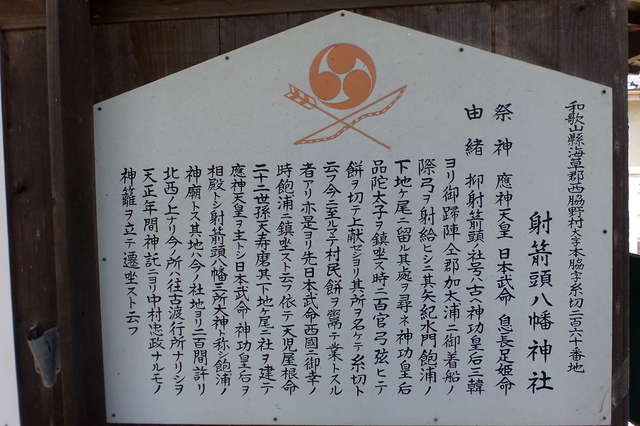 和歌山縣海草郡西脇野村大字本脇字糸切二百六十番地
射箭頭八幡神社
祭神 應神天皇 日本武命 息長足姫命
由緒 抑射箭頭ノ社号ハ古ヘ神功皇后三韓
ヨリ御蹄陣仝郡加太浦ニ御着船ノ
際弓ヲ射給ヒシニ其矢紀水門飽浦ノ
下地ケ尾ニ留ル其處ヲ尋ネ神功皇后
品陀太子ヲ鎮坐ス時ニ百官弓弦ヒテ
餅ヲ切テ上献セシヨリ其所ヲ名ケテ糸切ト
云フ今ニ至ルマテ村民餅ヲ鬻テ業トスル
者アリ亦是ヨリ先日本武命西國ニ御幸ノ
時飽浦ニ鎮坐スト云フ依テ天児屋根命
二十二世孫天寿磨其下地ケ尾ニ社ヲ建テ
應神天皇ヲ主トシ日本武命 神功皇后ヲ
相殿トシ射箭頭八幡三所大神ト称シ飽浦ノ
神廟トス其地ハ今ノ社地ヨリ二百間許リ
北西ノ上ナリ今ノ所ハ往古渡行所ナリシヲ
天正年間神託ニヨリ中村忠政ナルモノ
神籬ヲ立テ遷坐スト云フ